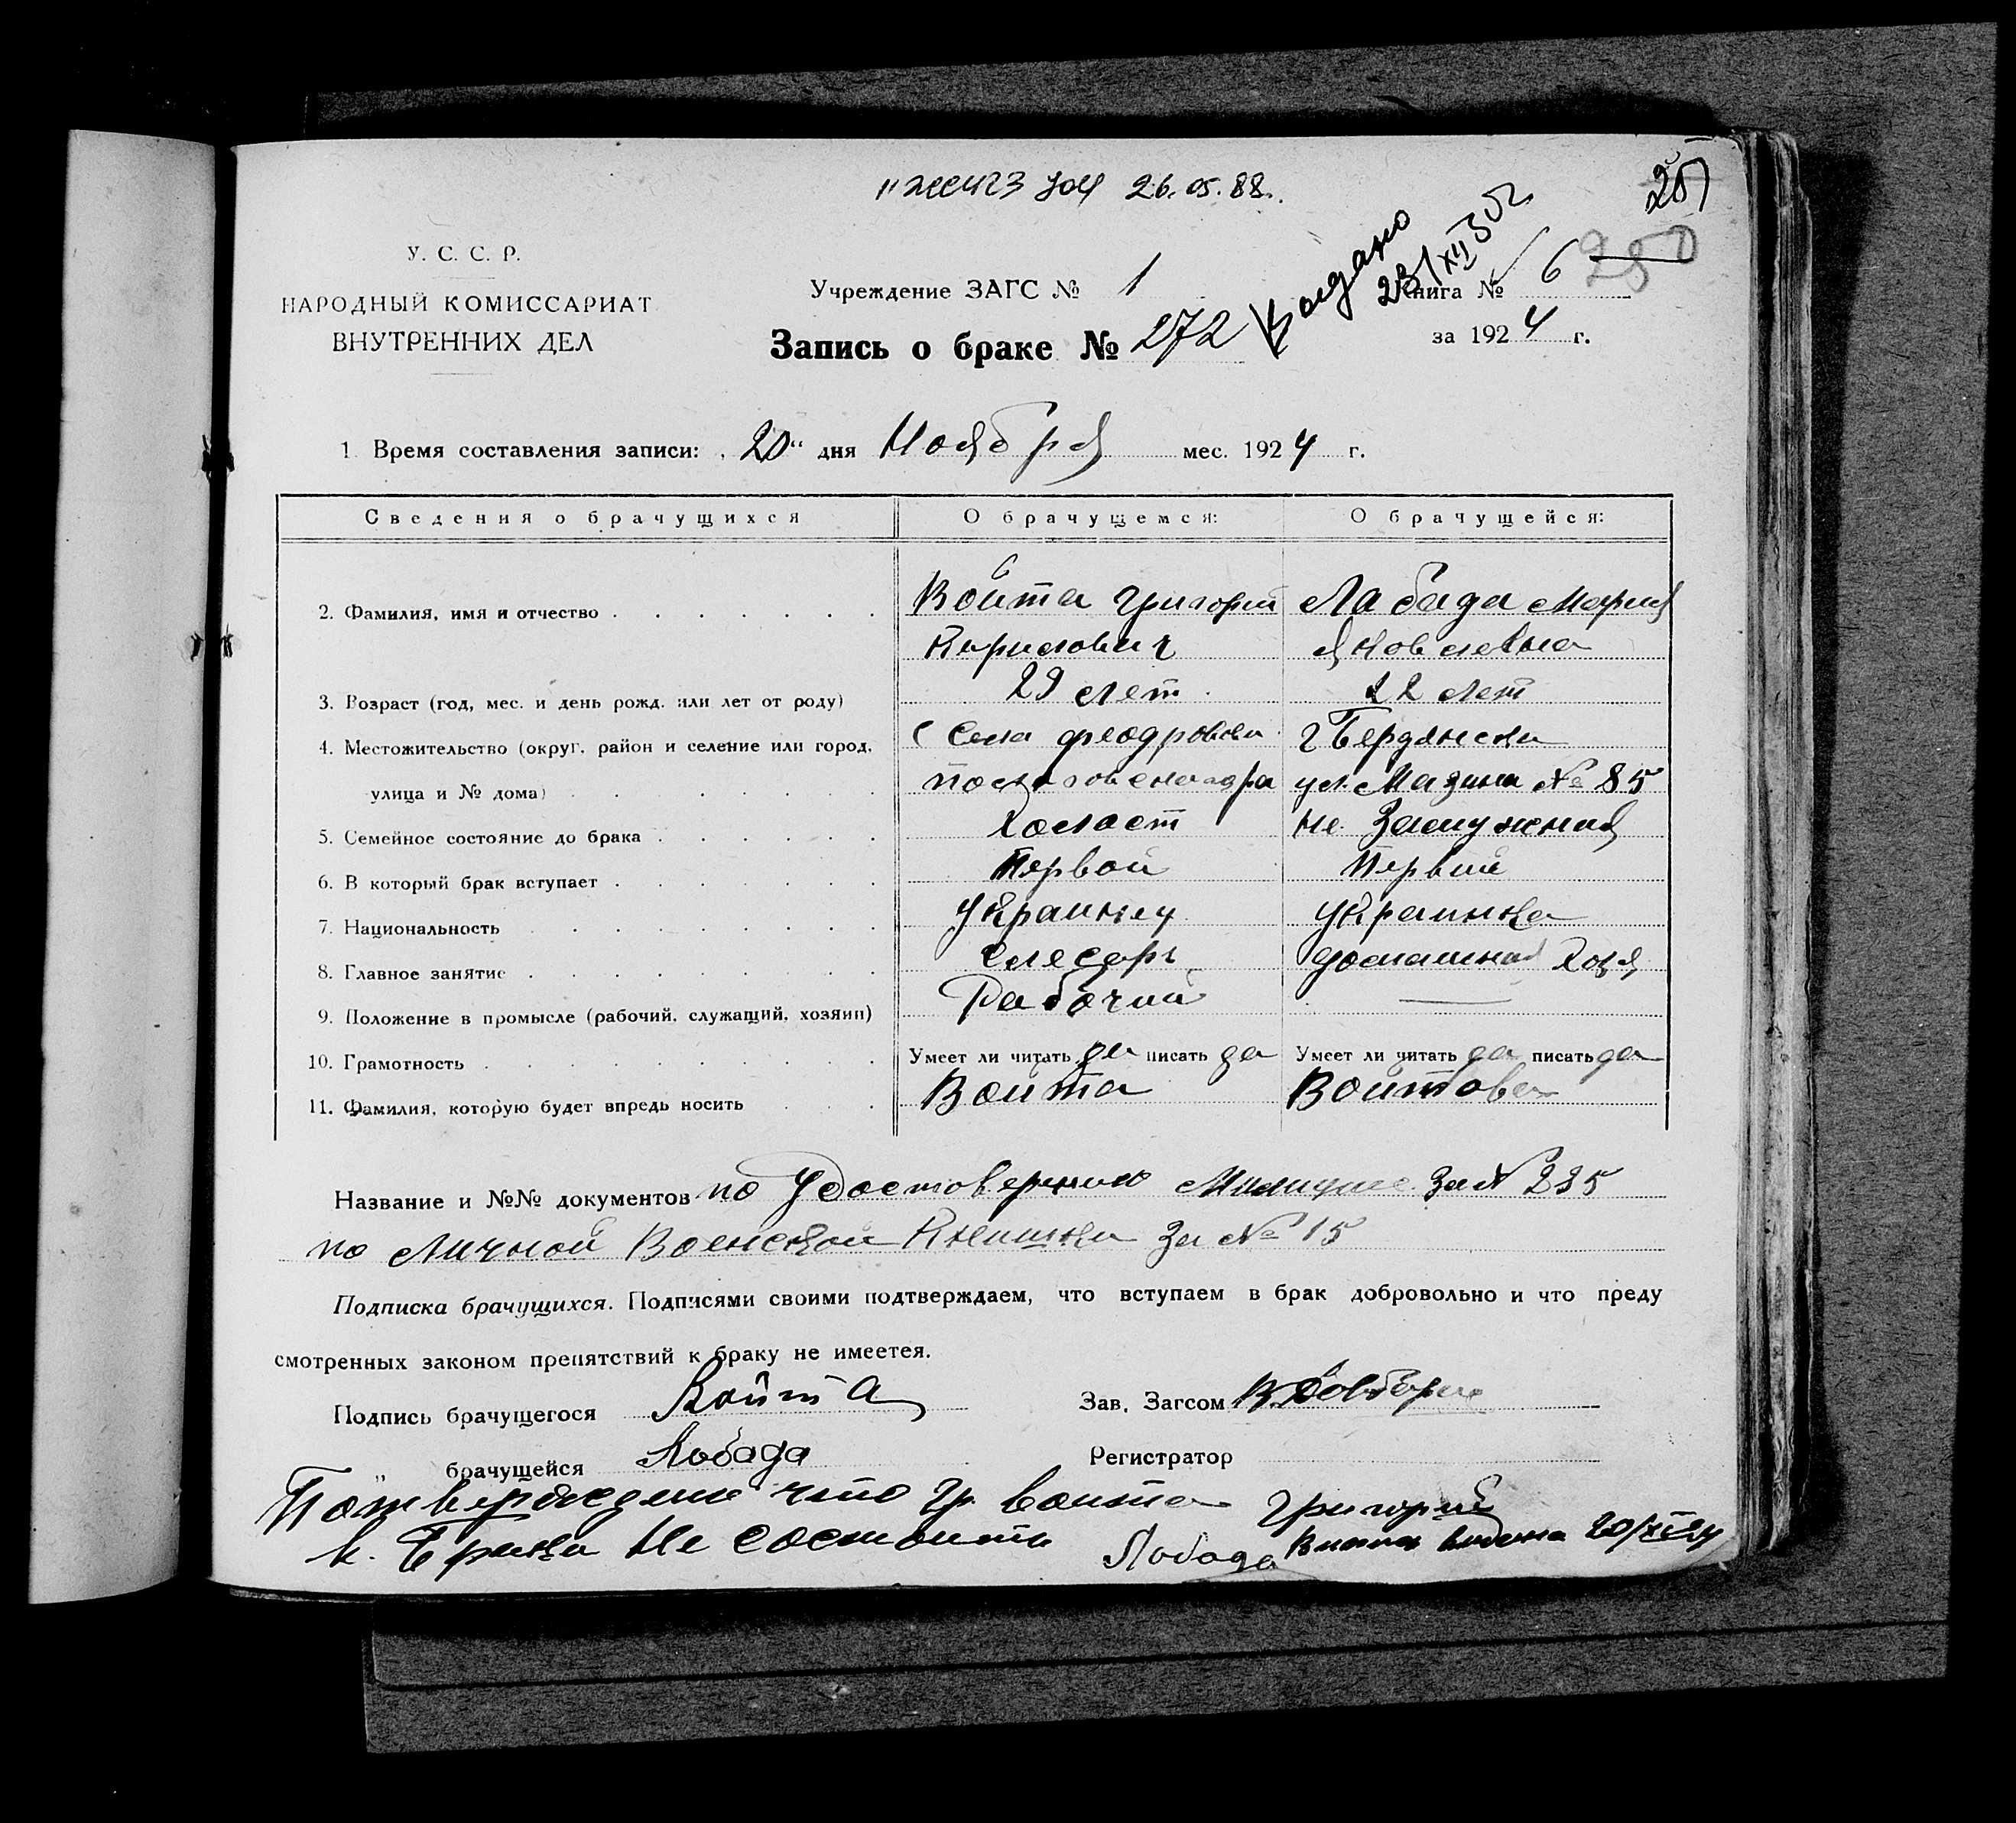 26.05.88.
251
У. С. С. Р.
НАРОДНЫЙ КОМИССАРИАТ
ВНУТРЕННИХ ДЕЛ
Учреждение ЗАГС № 1
Выдано
23/XII 52
Книга № 6 250
Запись о браке № 272
за 1924 г.
1. Время составления записи: „20“ дня Ноября мес. 1924 г.
Сведения о брачущихся О брачущемся: О брачущейся:
2. Фамилия, имя и отчество Войта Григорий Лабада Мария
Кирилович Яковлевна
3. Возраст (год, мес. и день рожд. или лет от роду) 29 лет 22 лет
4. Местожительство (округ, район и селение или город, Села феодровки г Бердянска
улица и № дома) ул. Мазина № 85
5. Семейное состояние до брака Холост не Замужная
6. В который брак вступает Первой Первый
7. Национальность Украинец Украинка
8. Главное занятие Слесарь домашная Хозя
9. Положение в промысле (рабочий, служащий, хозяин) Рабочий —
10. Грамотность Умеет ли читать да писать да Умеет ли читать да писать да
11. Фамилия, которую будет впредь носить Войта Войтова
Название и №№ документов по Удостоверению Милиции за № 235
по Личной Военской Книшки за № 15
Подписка брачущихся. Подписями своими подтверждаем, что вступаем в брак добровольно и что преду
смотренных законом препятствий к браку не имеется.
Подпись брачущегося Войта Зав. Загсом
„ брачущейся Лобада Регистратор
Потверождение что гр. Воита Григорий
в. Браки не состоить Лобада 20/XI 24